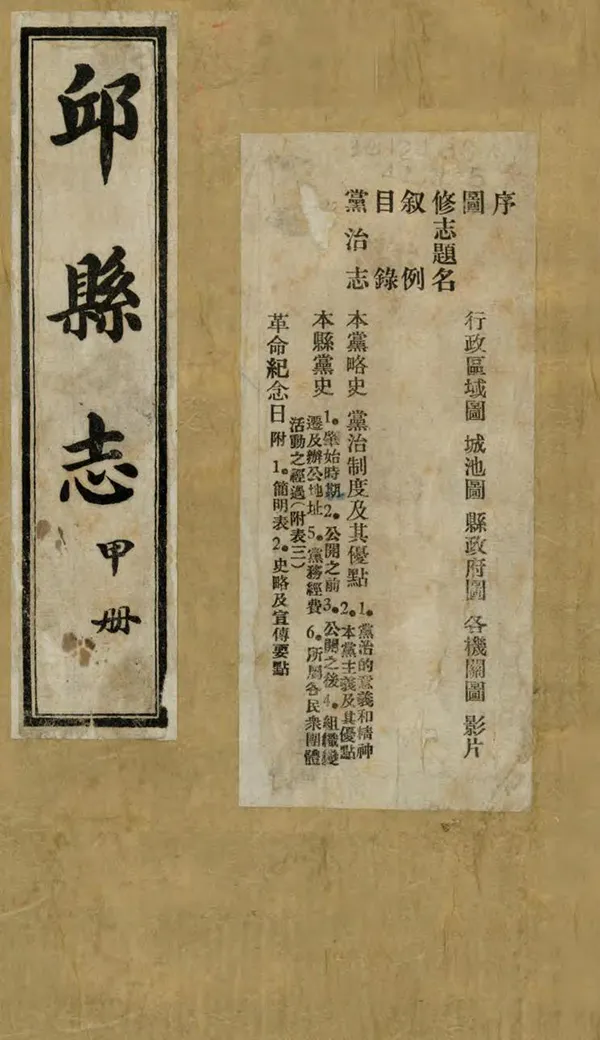 序
圖 行政區域圖 城池圖 縣政府圖 各機關圖 影片
修志題名
叙例
目錄
黨治志 本黨略史 黨治制度及其優點 1。黨治的意義和精神
2。本黨主義及其優點
本縣黨史 1。肇始時期 2。公開之前 3。公開之後 4。組織變
遷及辦公地址 5。黨務經費 6。所屬各民衆團體
活動之經過(附表三)
革命紀念日附 1。簡明表 2。史略及宣傳要點
邱縣志 甲册